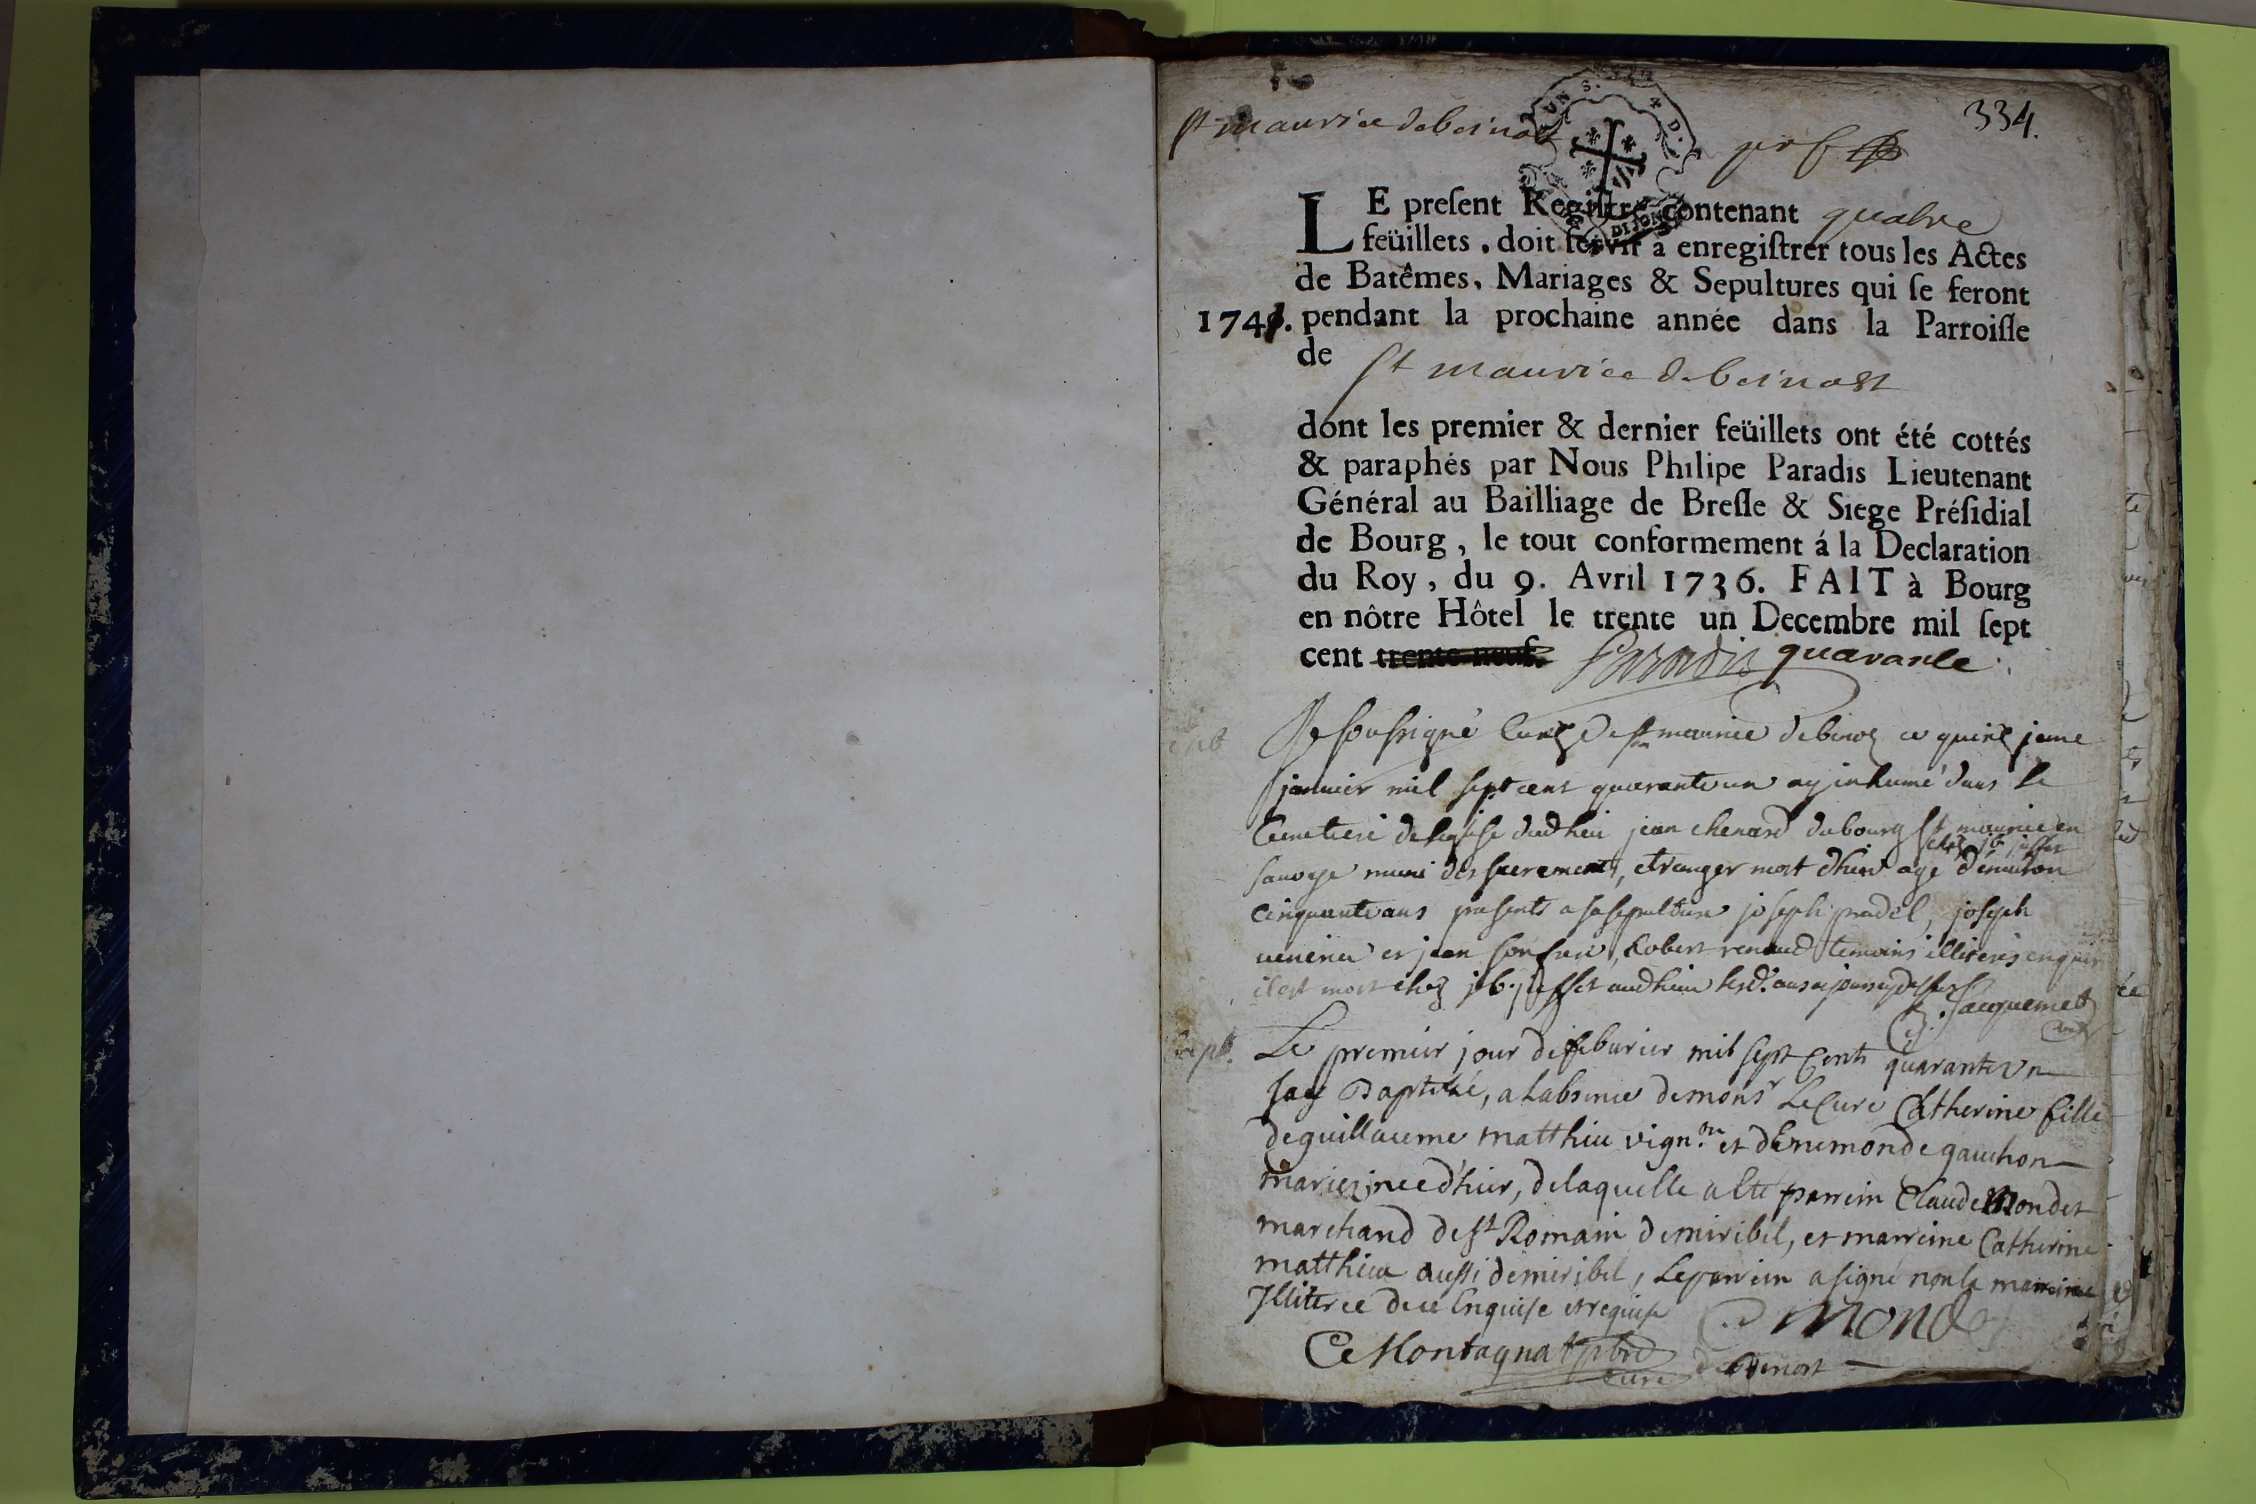 334.
st maurice debeinost
LE preſent Regiſtre contenant quatre
feüillets, doit ſervir a enregiſtrer tous les Actes
de Batêmes, Mariages & Sepultures qui ſe feront
1741. pendant la prochaine année dans la Parroiſſe
de st maurice debeinost
dont les premier & dernier feüillets ont été cottés
& paraphés par Nous Philipe Paradis Lieutenant
Général au Bailliage de Breſſe & Siege Préſidial
de Bourg, le tout conformement á la Declaration
du Roy, du 9. Avril 1736. FAIT à Bourg
en nôtre Hôtel le trente un Decembre mil ſept
cent trente neuf. Paradis quarante
Je soussigné Curé de st maurice debinos ce quinzieme
janvier mil sept cent quarante un ay inhumé dans le
Cemetiere de leglise dudit lieu jean chenard du bourg st maurice en
savoye muni des sacrements, etranger mort d'hier agé d'environ
cinquante ans presents a sa sepulture joseph pradel, joseph
et jean son frere, Robert renaud temoins illiterés enquis
il est mort chez
Jacquemet
curé
Le premier jour de feburier mil sept Cents quarante Vn
Jay Baptisé, a Labsence de monsr Le Cure Catherine fille
de guillaume matthieu vign.on et dEnnemonde gauchon
mariez, nee d'hier, de laquelle a Eté parrein Claude Mondet
marchand de st Romain de miribel, et marreine Catherine
matthieu aussi de miribel, Le parrein a signé non la marreine
Illiteree de ce Enquise et requise
C Mondet
Ce Montagnat pbre
curé de Beinost